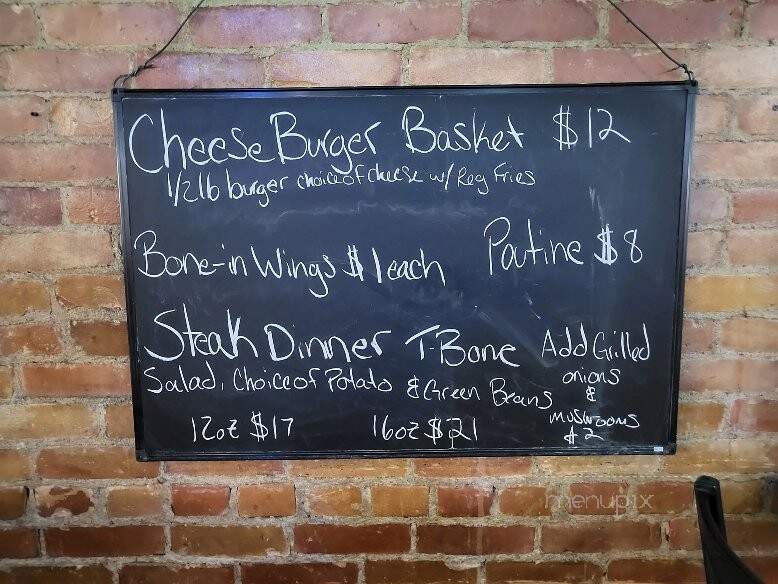 Cheese Burger Basket $12
1/2lb burger choice of cheese w/ Reg Fries
Bone-in Wings $1 each
Poutine $8
Steak Dinner T-Bone
Salad, Choice of Potato & Green Beans
12oz $17 16oz $21
Add Grilled
onions
&
Mushrooms
$2
menupix